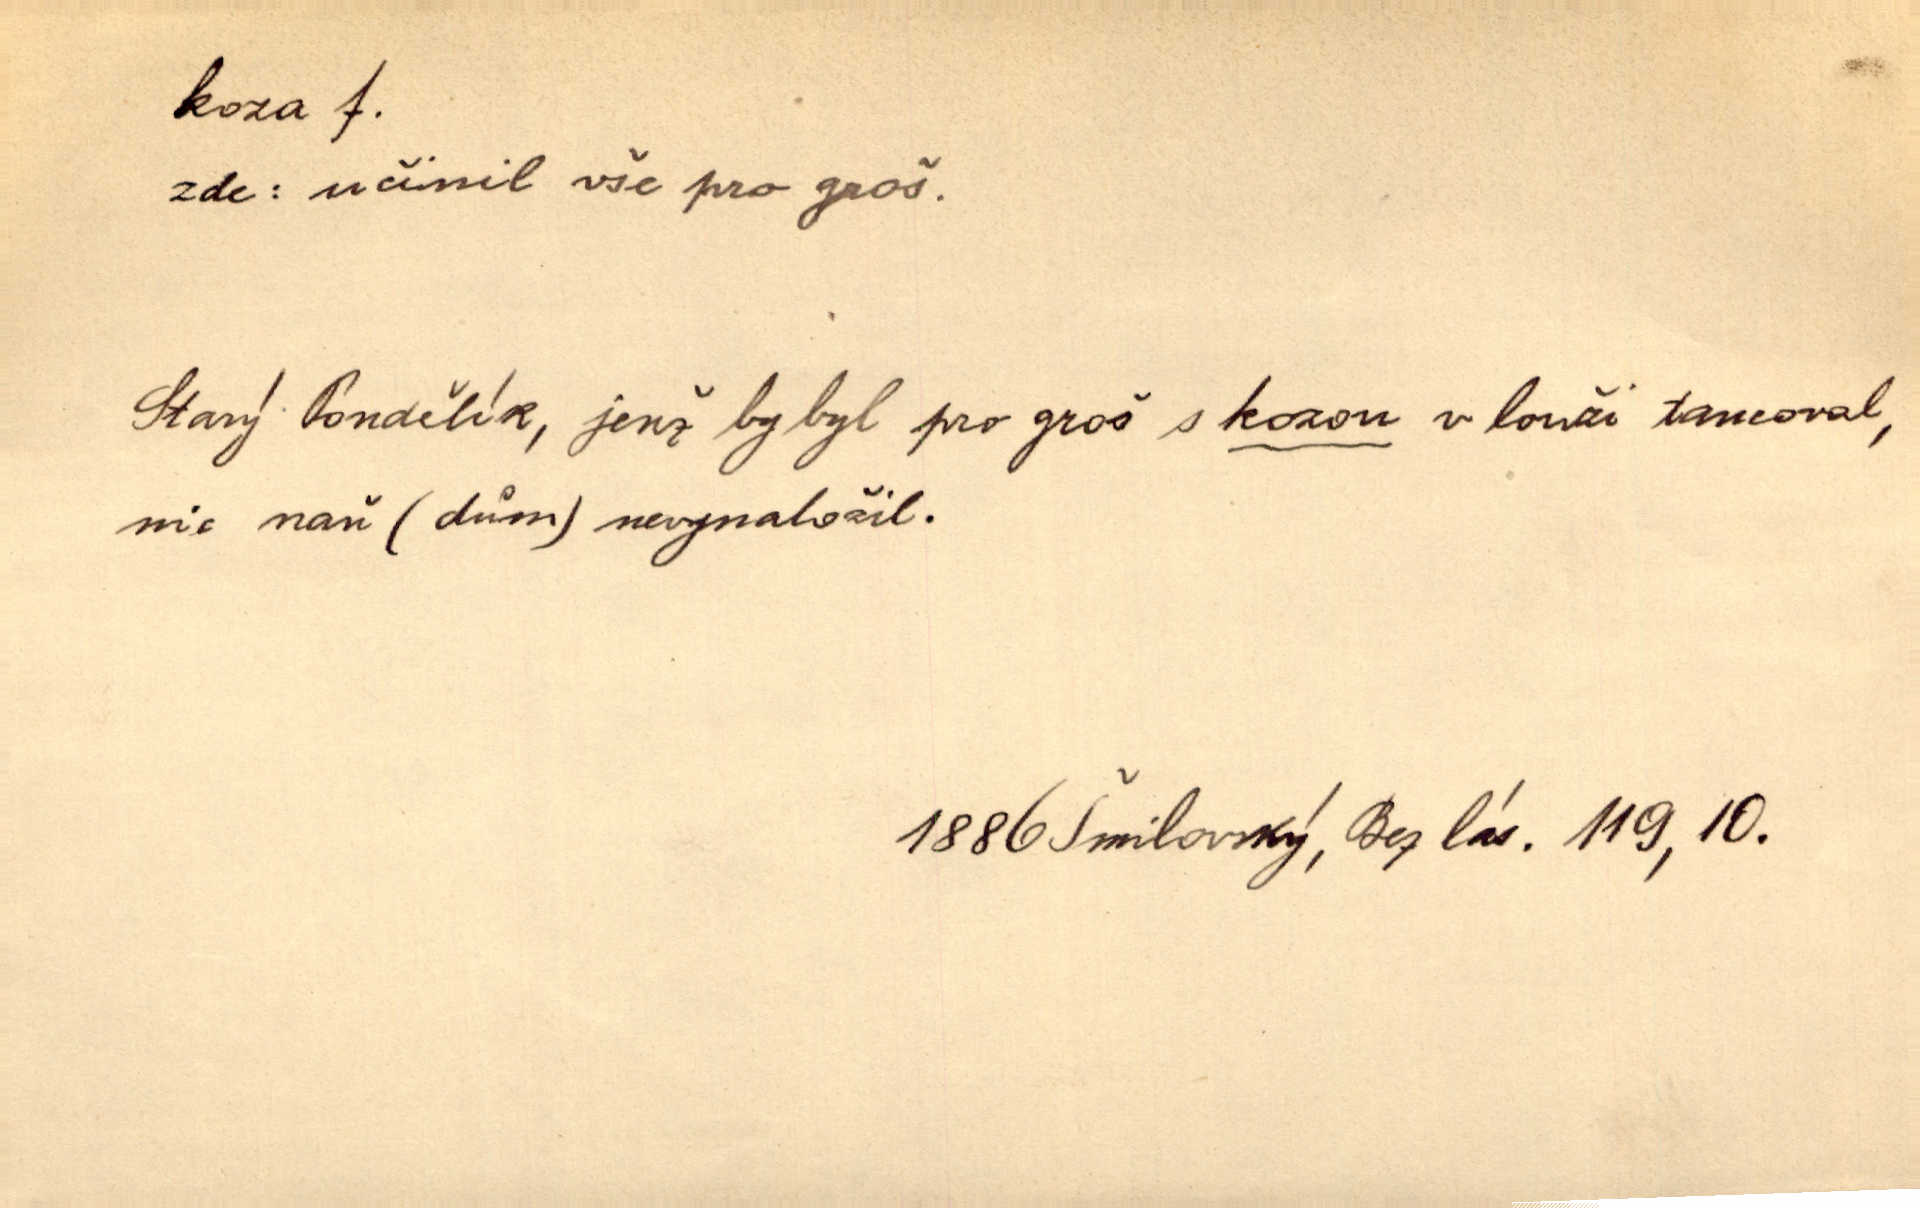 koza f.
zde: učinil vše pro groš.
Starý Pondělík, jenž by byl pro groš s kozou v louži tancoval,
nic naň (dům) nevynaložil.
1886 Šmilovský, Bez lás. 119, 10.